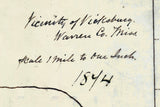 Vicinity of Vicksburg.
Warren Co. Miss
Scale 1 Mile to One Inch.
1874